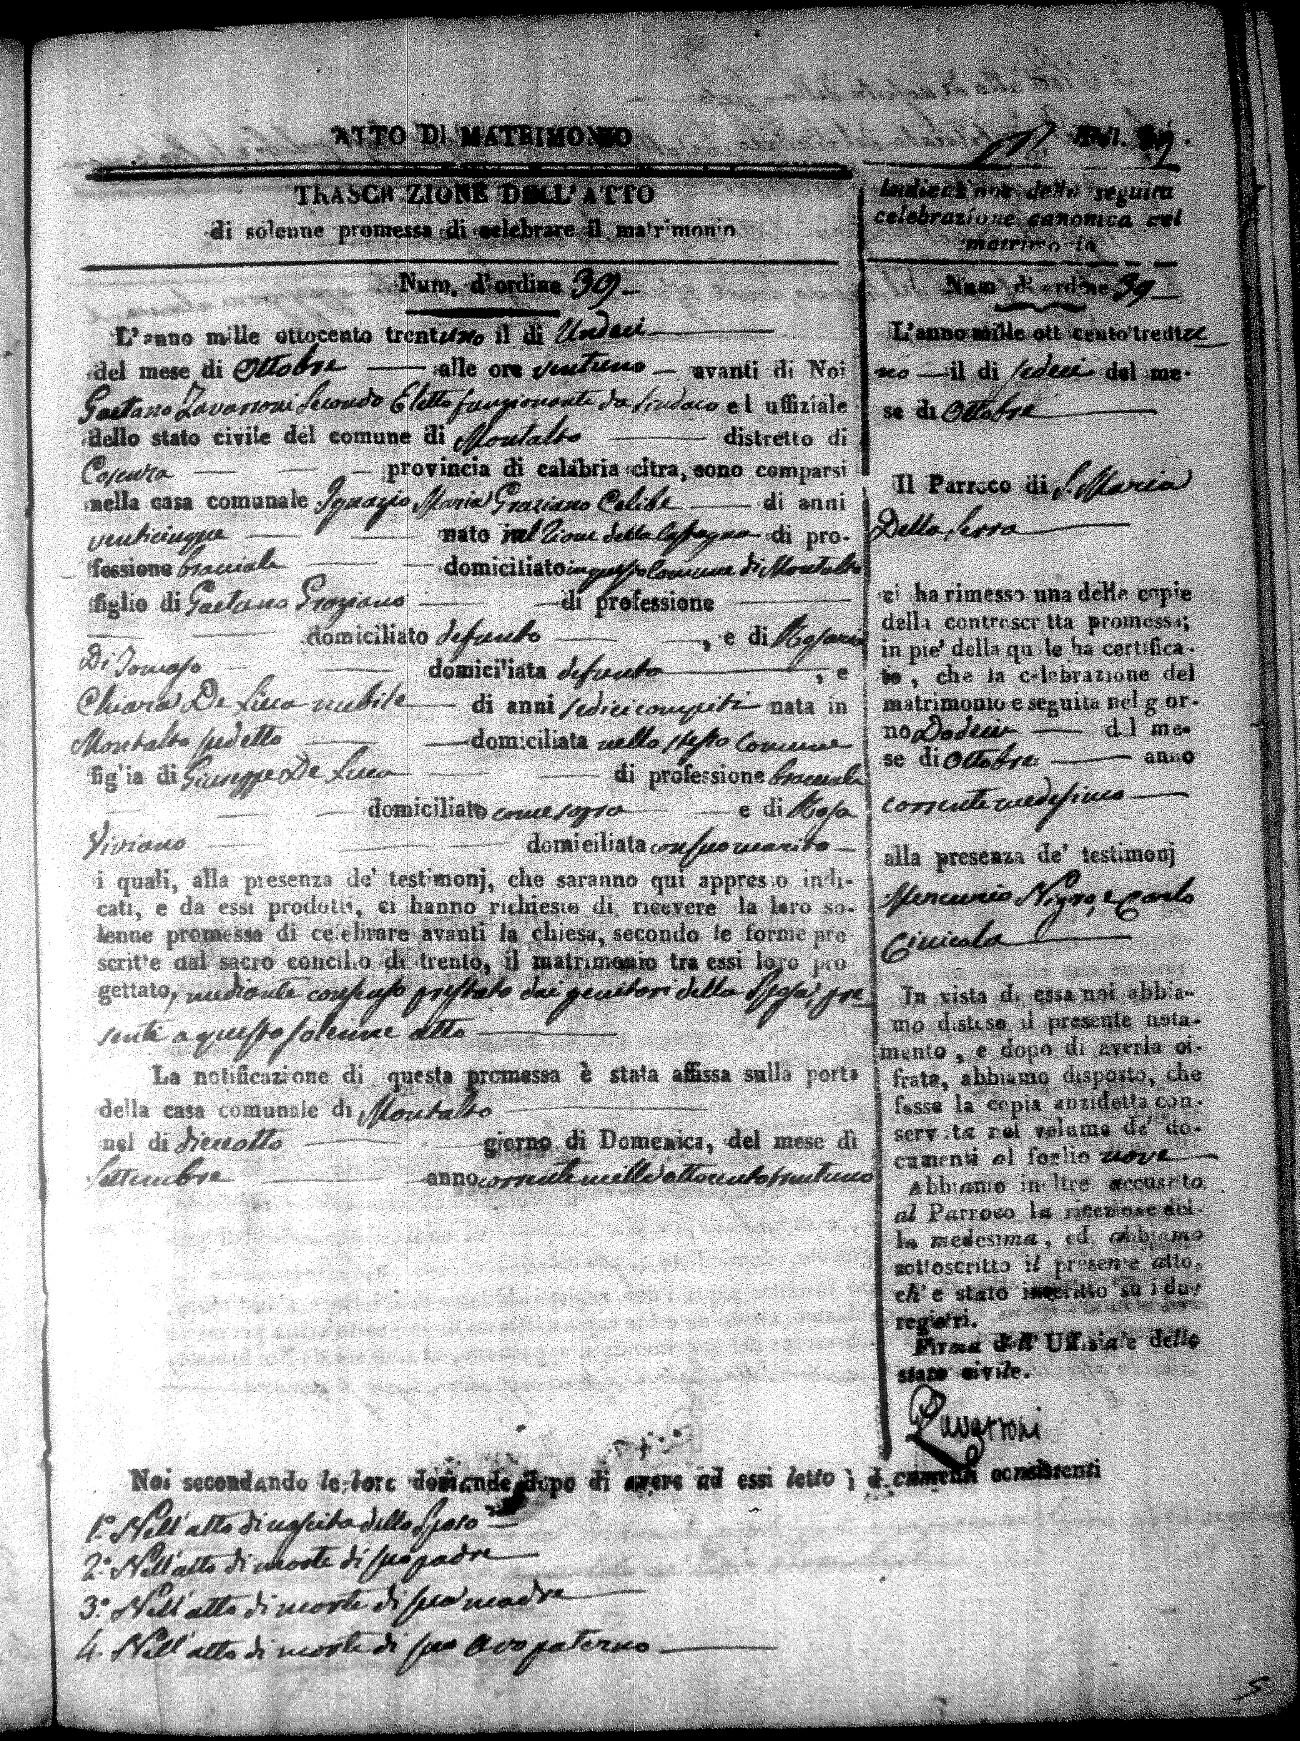 ATTO DI MATRIMONIO
Fol.
TRASCRIZIONE DELL'ATTO
di solenne promessa di celebrare il matrimonio
Num. d'ordine 39
L'anno mille ottocento trentuno il di Undeci
del mese di Ottobre alle ore ventuno avanti di Noi
Gaetano Zavarroni Secondo Eletto funzionante da Sindaco e l uffiziale
dello stato civile del comune di Montalto distretto di
Cosenza provincia di calabria citra, sono comparsi
nella casa comunale Ignazio Maria Graziano Celibe di anni
venticinque nato nel di pro-
fessione bracciale domiciliato in questo Comune di Montalto
figlio di Gaetano Graziano di professione
domiciliato defunto , e di Rosaria
Di Tomaso domiciliata defunta , e
Chiara De Luca nubile di anni sedici compiti nata in
Montalto sudetto domiciliata nello stesso Comune
figlia di Giuseppe De Luca di professione bracciale
domiciliato come sopra e di Rosa
Viviano domiciliata con suo marito
i quali, alla presenza de' testimonj, che saranno qui appresso indi-
cati, e da essi prodotti, ci hanno richiesto di ricevere la loro so-
lenne promessa di celebrare avanti la chiesa, secondo le forme pre
scritte dal sacro concilio di trento, il matrimonio tra essi loro pro
gettato, mediante consenso prestato dai genitori della Sposa, pre
senti a questo solenne atto
La notificazione di questa promessa è stata affissa sulla porta
della casa comunale di Montalto
nel di dieciotto giorno di Domenica, del mese di
Settembre anno corrente mille ottocento trentuno
Indicazione della seguita
celebrazione canonica del
matrimonio
Num d'ordine 39
L'anno mille ottocento trentu
no il di sedeci del me-
se di Ottobre
Il Parroco di S. Maria
Della Serra
ci ha rimesso una delle copie
della controscritta promessa;
in pie' della quale ha certifica-
to, che la celebrazione del
matrimonio e seguita nel gior-
no Dodeci del me-
se di Ottobre anno
corrente medesimo
alla presenza de' testimonj
Mercurio Nigro, e Carlo
Cinicola
In vista di essa noi abbia-
mo disteso il presente nota-
mento, e dopo di averla ci-
frata, abbiamo disposto, che
fosse la copia anzidetta con-
servata nel volume de' do-
cumenti al foglio nove
Abbiamo inoltre accusato
al Parroco la ricezione del-
la medesima, ed abbiamo
sottoscritto il presente atto,
ch' e stato inscritto su i due
registri.
Firma dell' Uffiziale dello
stato civile.
Zavarroni
Noi secondando le loro domande dopo di avere ad essi letto i documenti consistenti
1.° Nell'atto di nascita dello Sposo
2.° Nell'atto di morte di suo padre
3.° Nell'atto di morte di sua madre
4. Nell'atto di morte di suo Avo paterno